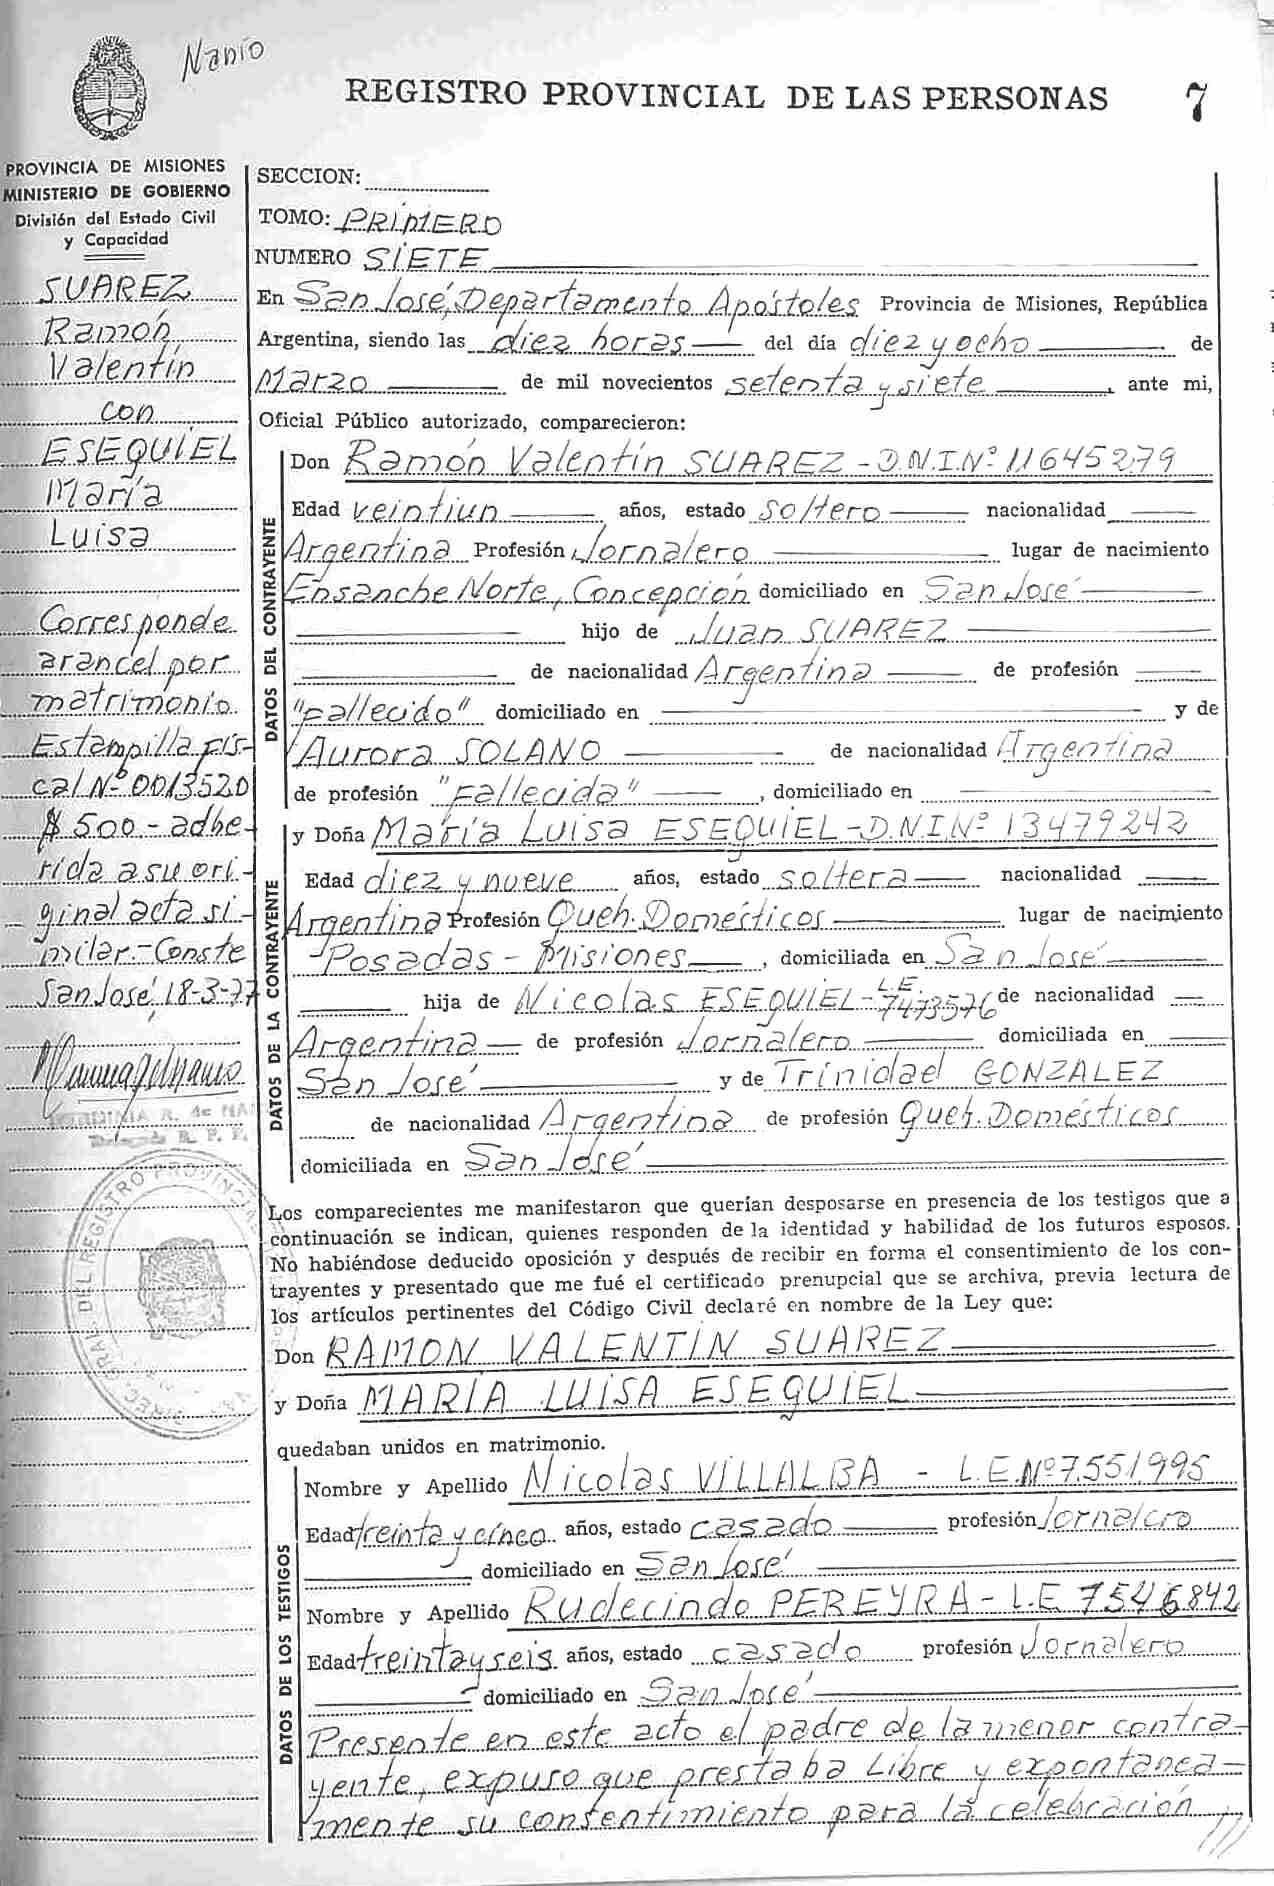 Nanio
REGISTRO PROVINCIAL DE LAS PERSONAS 7
PROVINCIA DE MISIONES
MINISTERIO DE GOBIERNO
División del Estado Civil
y Capacidad
SUAREZ
Ramón
Valentín
con
ESEQUIEL
María
Luisa
Corresponde
arancel por
matrimonio
Estampilla fis-
cal Nº 0013520
$ 500 - adhe-
rida a su ori-
ginal acta si-
milar.- Conste
San José, 18-3-77
SECCION:
TOMO: PRIMERO
NUMERO SIETE
En San José, Departamento Apóstoles Provincia de Misiones, República
Argentina, siendo las diez horas del día diez y ocho de
Marzo de mil novecientos setenta y siete, ante mi,
Oficial Público autorizado, comparecieron:
DATOS DEL CONTRAYENTE
Don Ramón Valentín SUAREZ - D.N.I.Nº 11645279
Edad veintiun años, estado soltero nacionalidad
Argentina Profesión Jornalero lugar de nacimiento
Ensanche Norte, Concepción domiciliado en San José
hijo de Juan SUAREZ
de nacionalidad Argentina de profesión
"Fallecido" domiciliado en y de
Aurora SOLANO de nacionalidad Argentina
de profesión "Fallecida", domiciliado en
DATOS DE LA CONTRAYENTE
y Doña María Luisa ESEQUIEL - D.N.I.Nº 13479242
Edad diez y nueve años, estado soltera nacionalidad
Argentina Profesión Queh. Domésticos lugar de nacimiento
Posadas - Misiones, domiciliada en San José
hija de Nicolas ESEQUIEL - L.E. 7473576 de nacionalidad
Argentina de profesión Jornalero domiciliada en
San José y de Trinidad GONZALEZ
de nacionalidad Argentina de profesión Queh. Domésticos
domiciliada en San José
Los comparecientes me manifestaron que querían desposarse en presencia de los testigos que a
continuación se indican, quienes responden de la identidad y habilidad de los futuros esposos.
No habiéndose deducido oposición y después de recibir en forma el consentimiento de los con-
trayentes y presentado que me fué el certificado prenupcial que se archiva, previa lectura de
los artículos pertinentes del Código Civil declaré en nombre de la Ley que:
Don RAMON VALENTIN SUAREZ
y Doña MARIA LUISA ESEQUIEL
quedaban unidos en matrimonio.
DATOS DE LOS TESTIGOS
Nombre y Apellido Nicolas VILLALBA - L.E.Nº 7.551995
Edad treinta y cinco años, estado casado profesión Jornalero
domiciliado en San José
Nombre y Apellido Rudecindo PEREYRA - L.E. 7546842
Edad treinta y seis años, estado casado profesión Jornalero
domiciliado en San José
Presente en este acto el padre de la menor contra-
yente, expuso que prestaba Libre y expontanea-
mente su consentimiento para la celebración ///